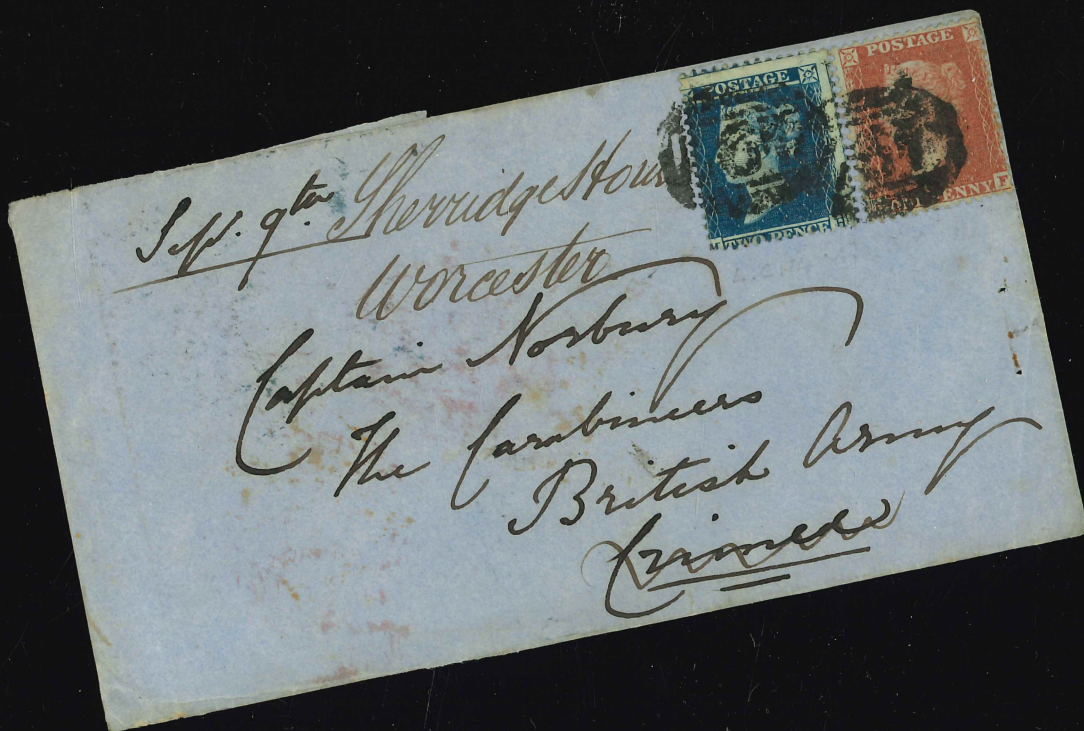 POSTAGE
POSTAGE
TWO PENCE
PENNY F
Sept. 9th Sherridge House
Worcester
Captain Norbury
The Carabineers
British Army
Crimea